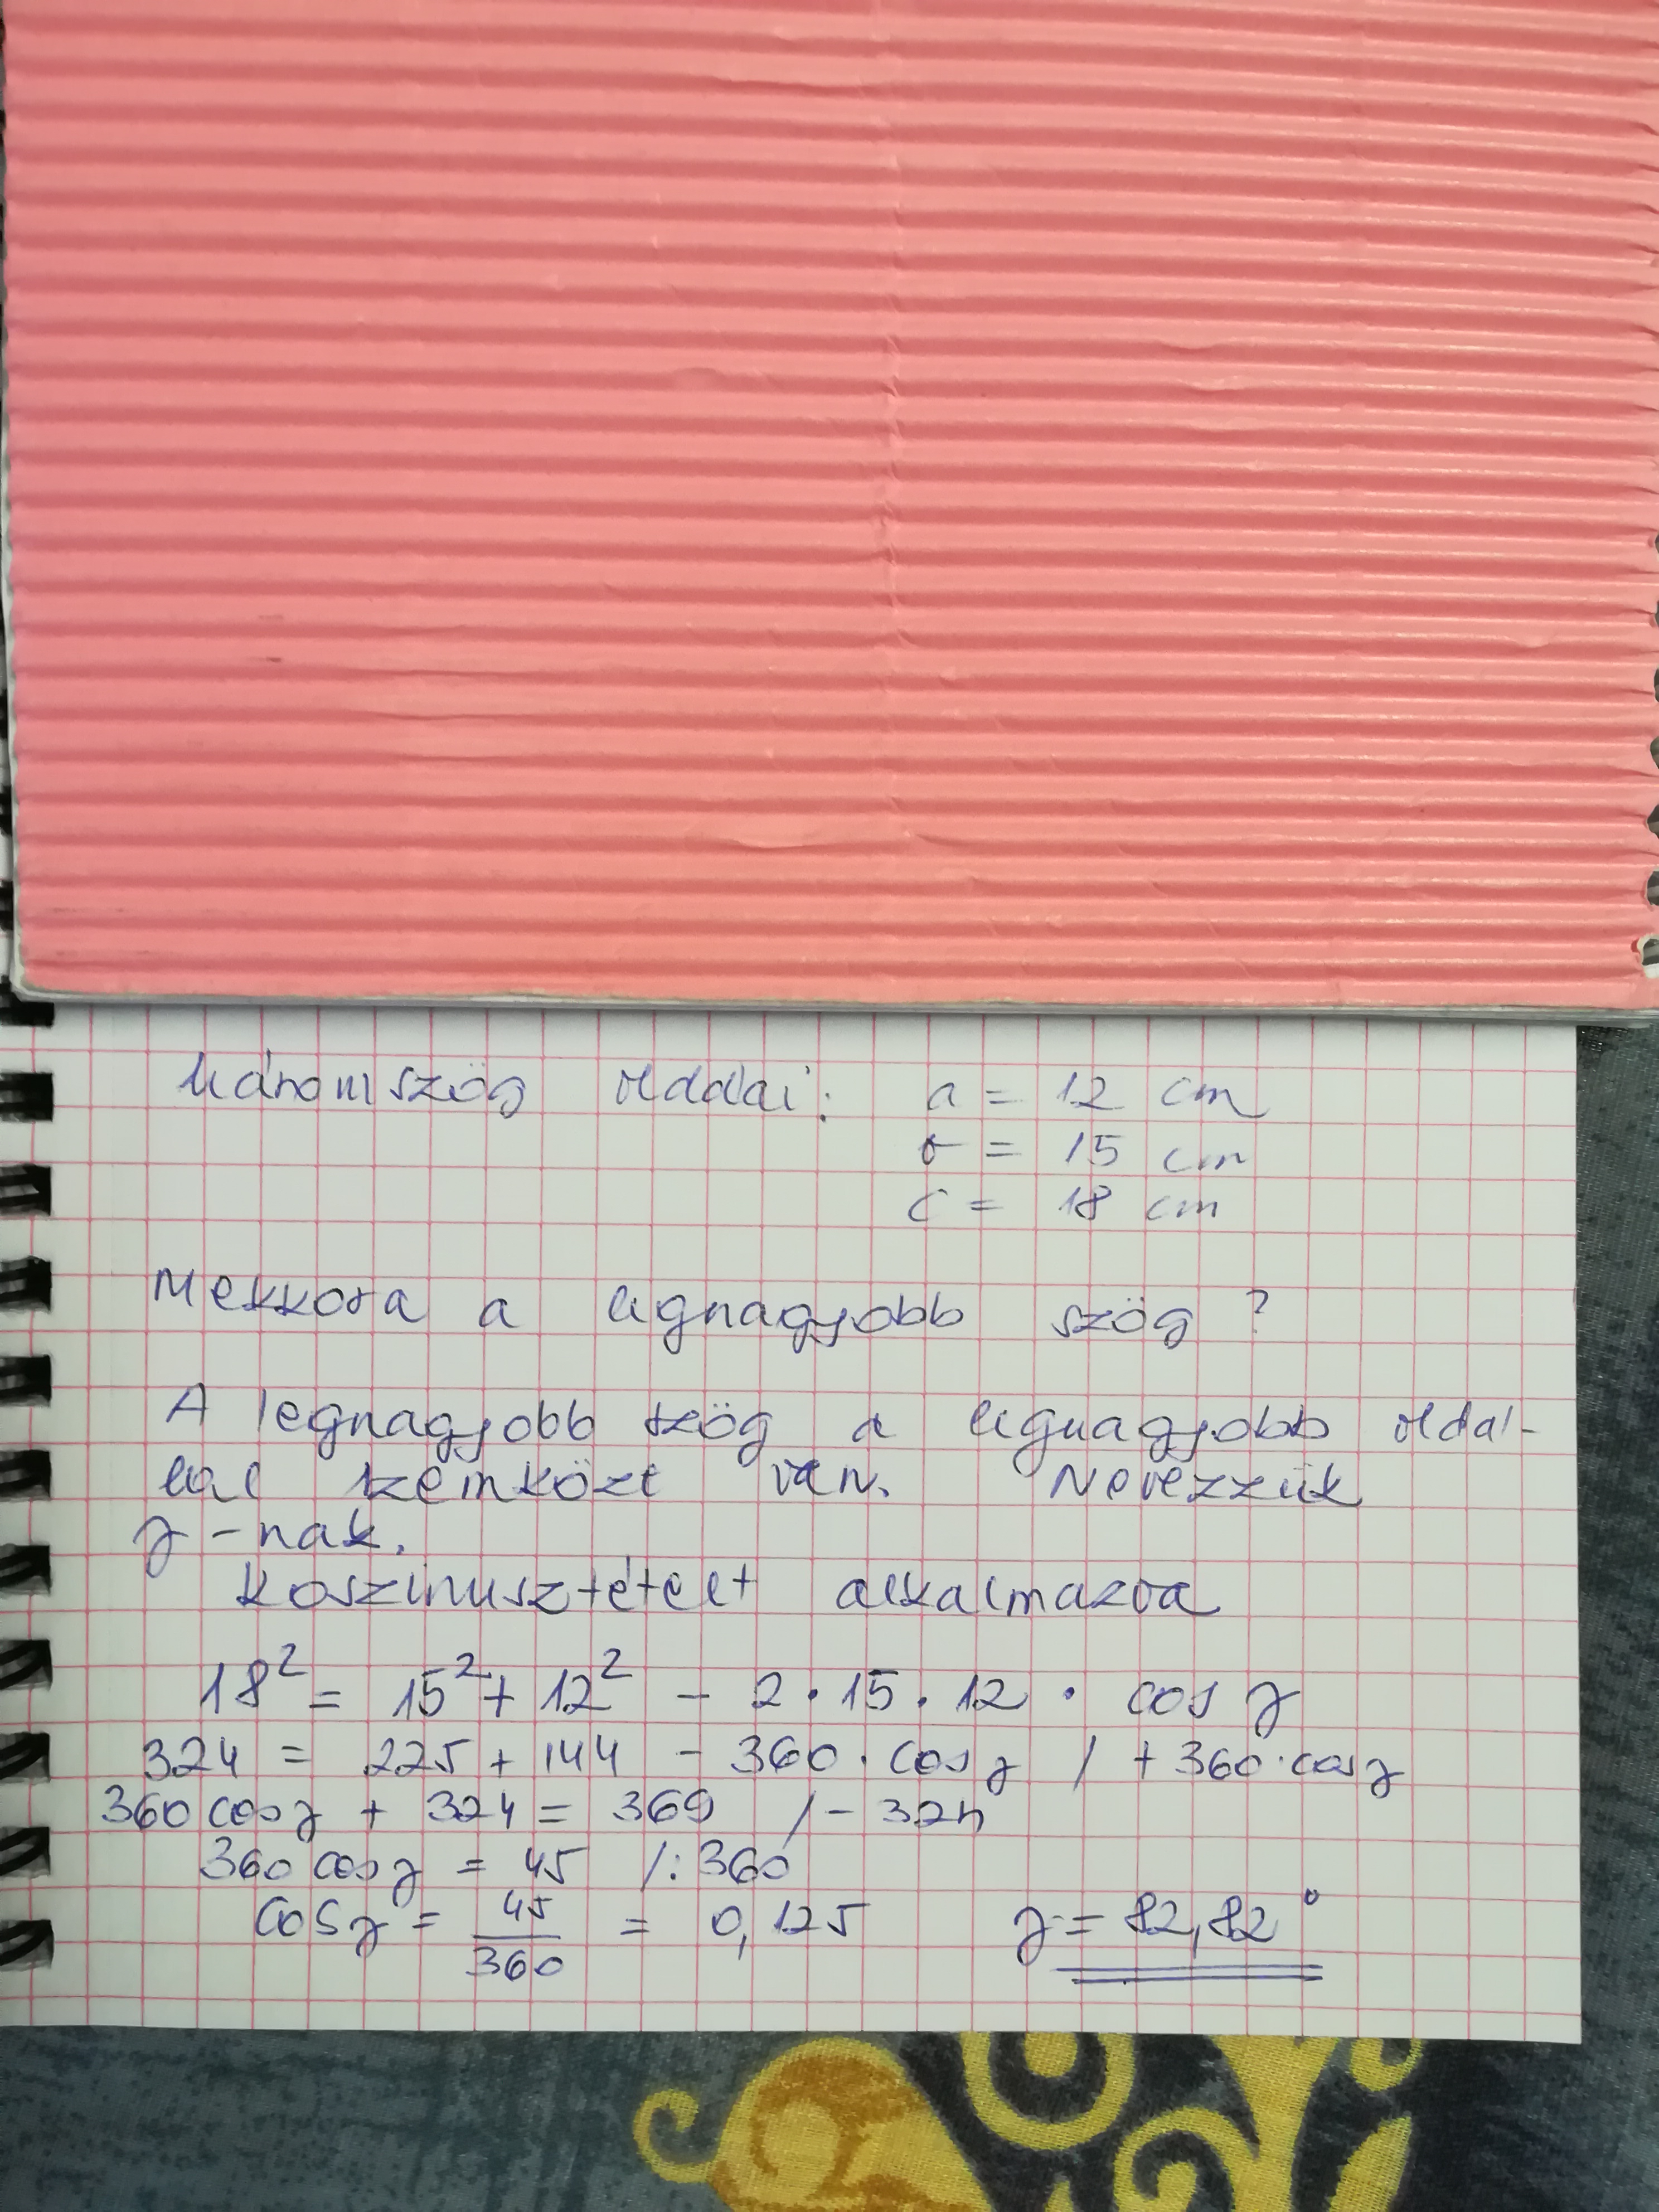 háromszög oldalai: a = 12 cm
b = 15 cm
c = 18 cm
Mekkora a legnagyobb szög?
A legnagyobb szög a legnagyobb oldal-
lal szemközt van. Nevezzük
γ-nak.
Koszinusztételt alkalmazva
18² = 15² + 12² - 2·15·12 · cos γ
324 = 225 + 144 - 360 · cos γ / + 360·cos γ
360 cos γ + 324 = 369 / - 324
360 cos γ = 45 /: 360
cos γ = 45/360 = 0,125 γ = 82,82°